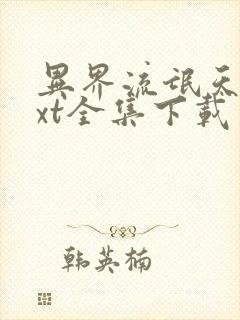 異界流氓天
xt全集下載
韩英楠